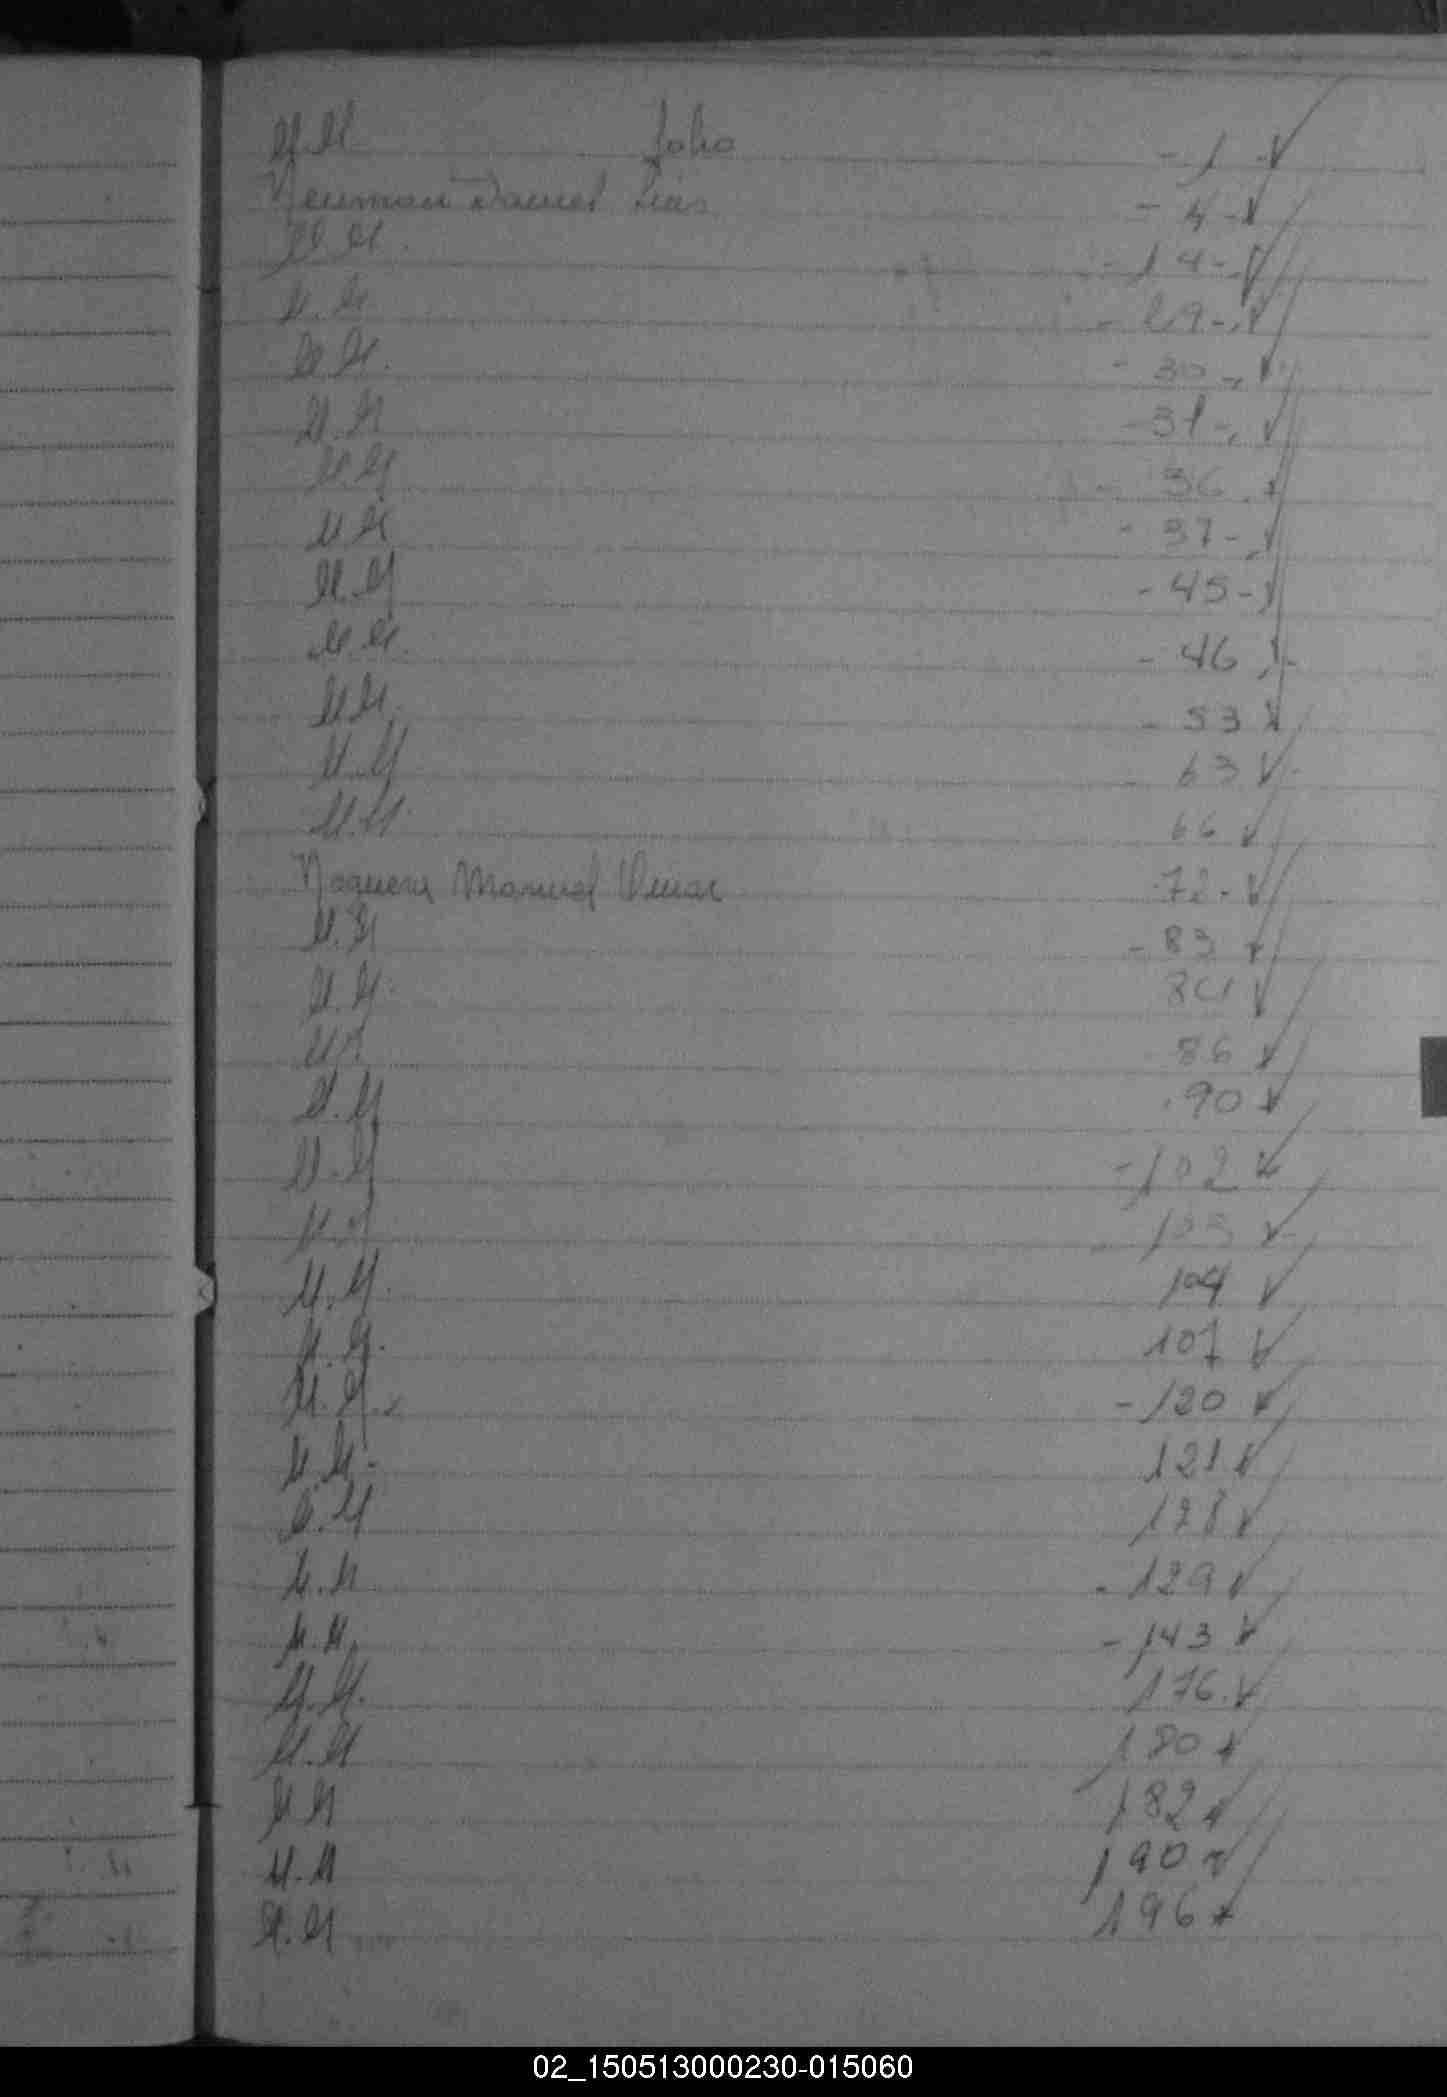 N.N. folio - 1 -
Neuman Daniel - 4 -
N.N. - 14 -
N.N. - 29 -
N.N. - 30 -
N.N. - 31 -
N.N. - 36
N.N. - 37 -
N.N. - 45 -
N.N. - 46
N.N. - 53
N.N. 63
N.N. 66
Noguera Manuel Omar 72 -
N.N. - 83
N.N. 84
N.N. 86
N.N. 90
N.N. - 102
N.N. 103
N.N. 104
N.N. 107
N.N. - 120
N.N. 121
N.N. 128
N.N. - 129
N.N. - 143
N.N. 176
N.N. 180
N.N. 182
N.N. 190
N.N. 196
02_150513000230-015060